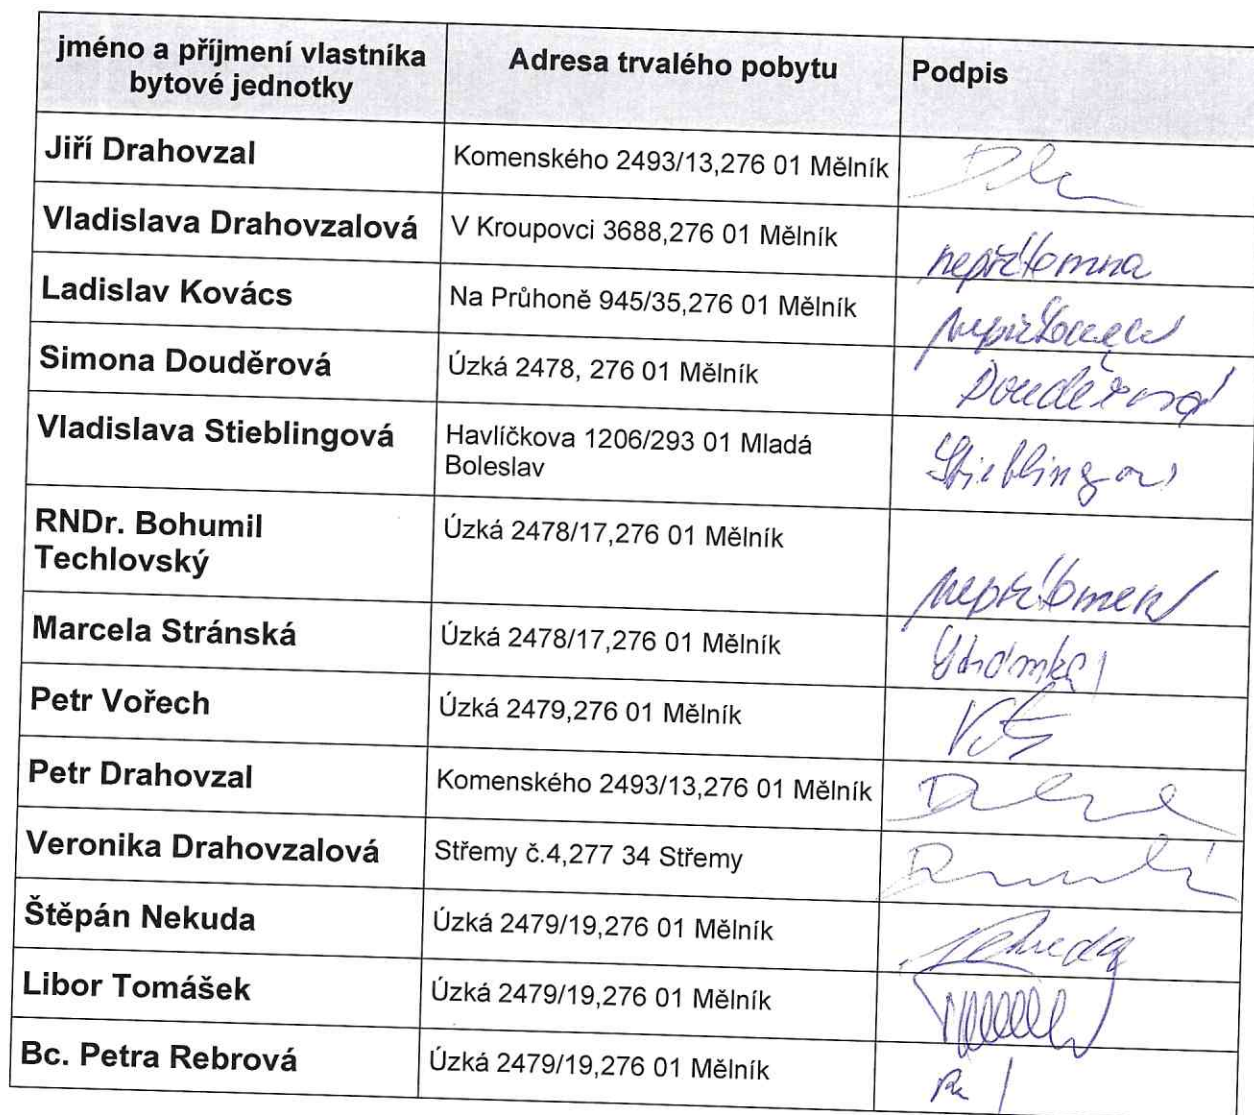 jméno a příjmení vlastníka
bytové jednotky
Adresa trvalého pobytu
Podpis
Jiří Drahovzal
Komenského 2493/13,276 01 Mělník
Vladislava Drahovzalová
V Kroupovci 3688,276 01 Mělník
nepřítomna
Ladislav Kovács
Na Průhoně 945/35,276 01 Mělník
nepřítomen
Simona Douděrová
Úzká 2478, 276 01 Mělník
Douděrová
Vladislava Stieblingová
Havlíčkova 1206/293 01 Mladá
Boleslav
Stieblingov
RNDr. Bohumil
Techlovský
Úzká 2478/17,276 01 Mělník
nepřítomen
Marcela Stránská
Úzká 2478/17,276 01 Mělník
Petr Vořech
Úzká 2479,276 01 Mělník
Petr Drahovzal
Komenského 2493/13,276 01 Mělník
Veronika Drahovzalová
Střemy č.4,277 34 Střemy
Štěpán Nekuda
Úzká 2479/19,276 01 Mělník
Libor Tomášek
Úzká 2479/19,276 01 Mělník
Bc. Petra Rebrová
Úzká 2479/19,276 01 Mělník